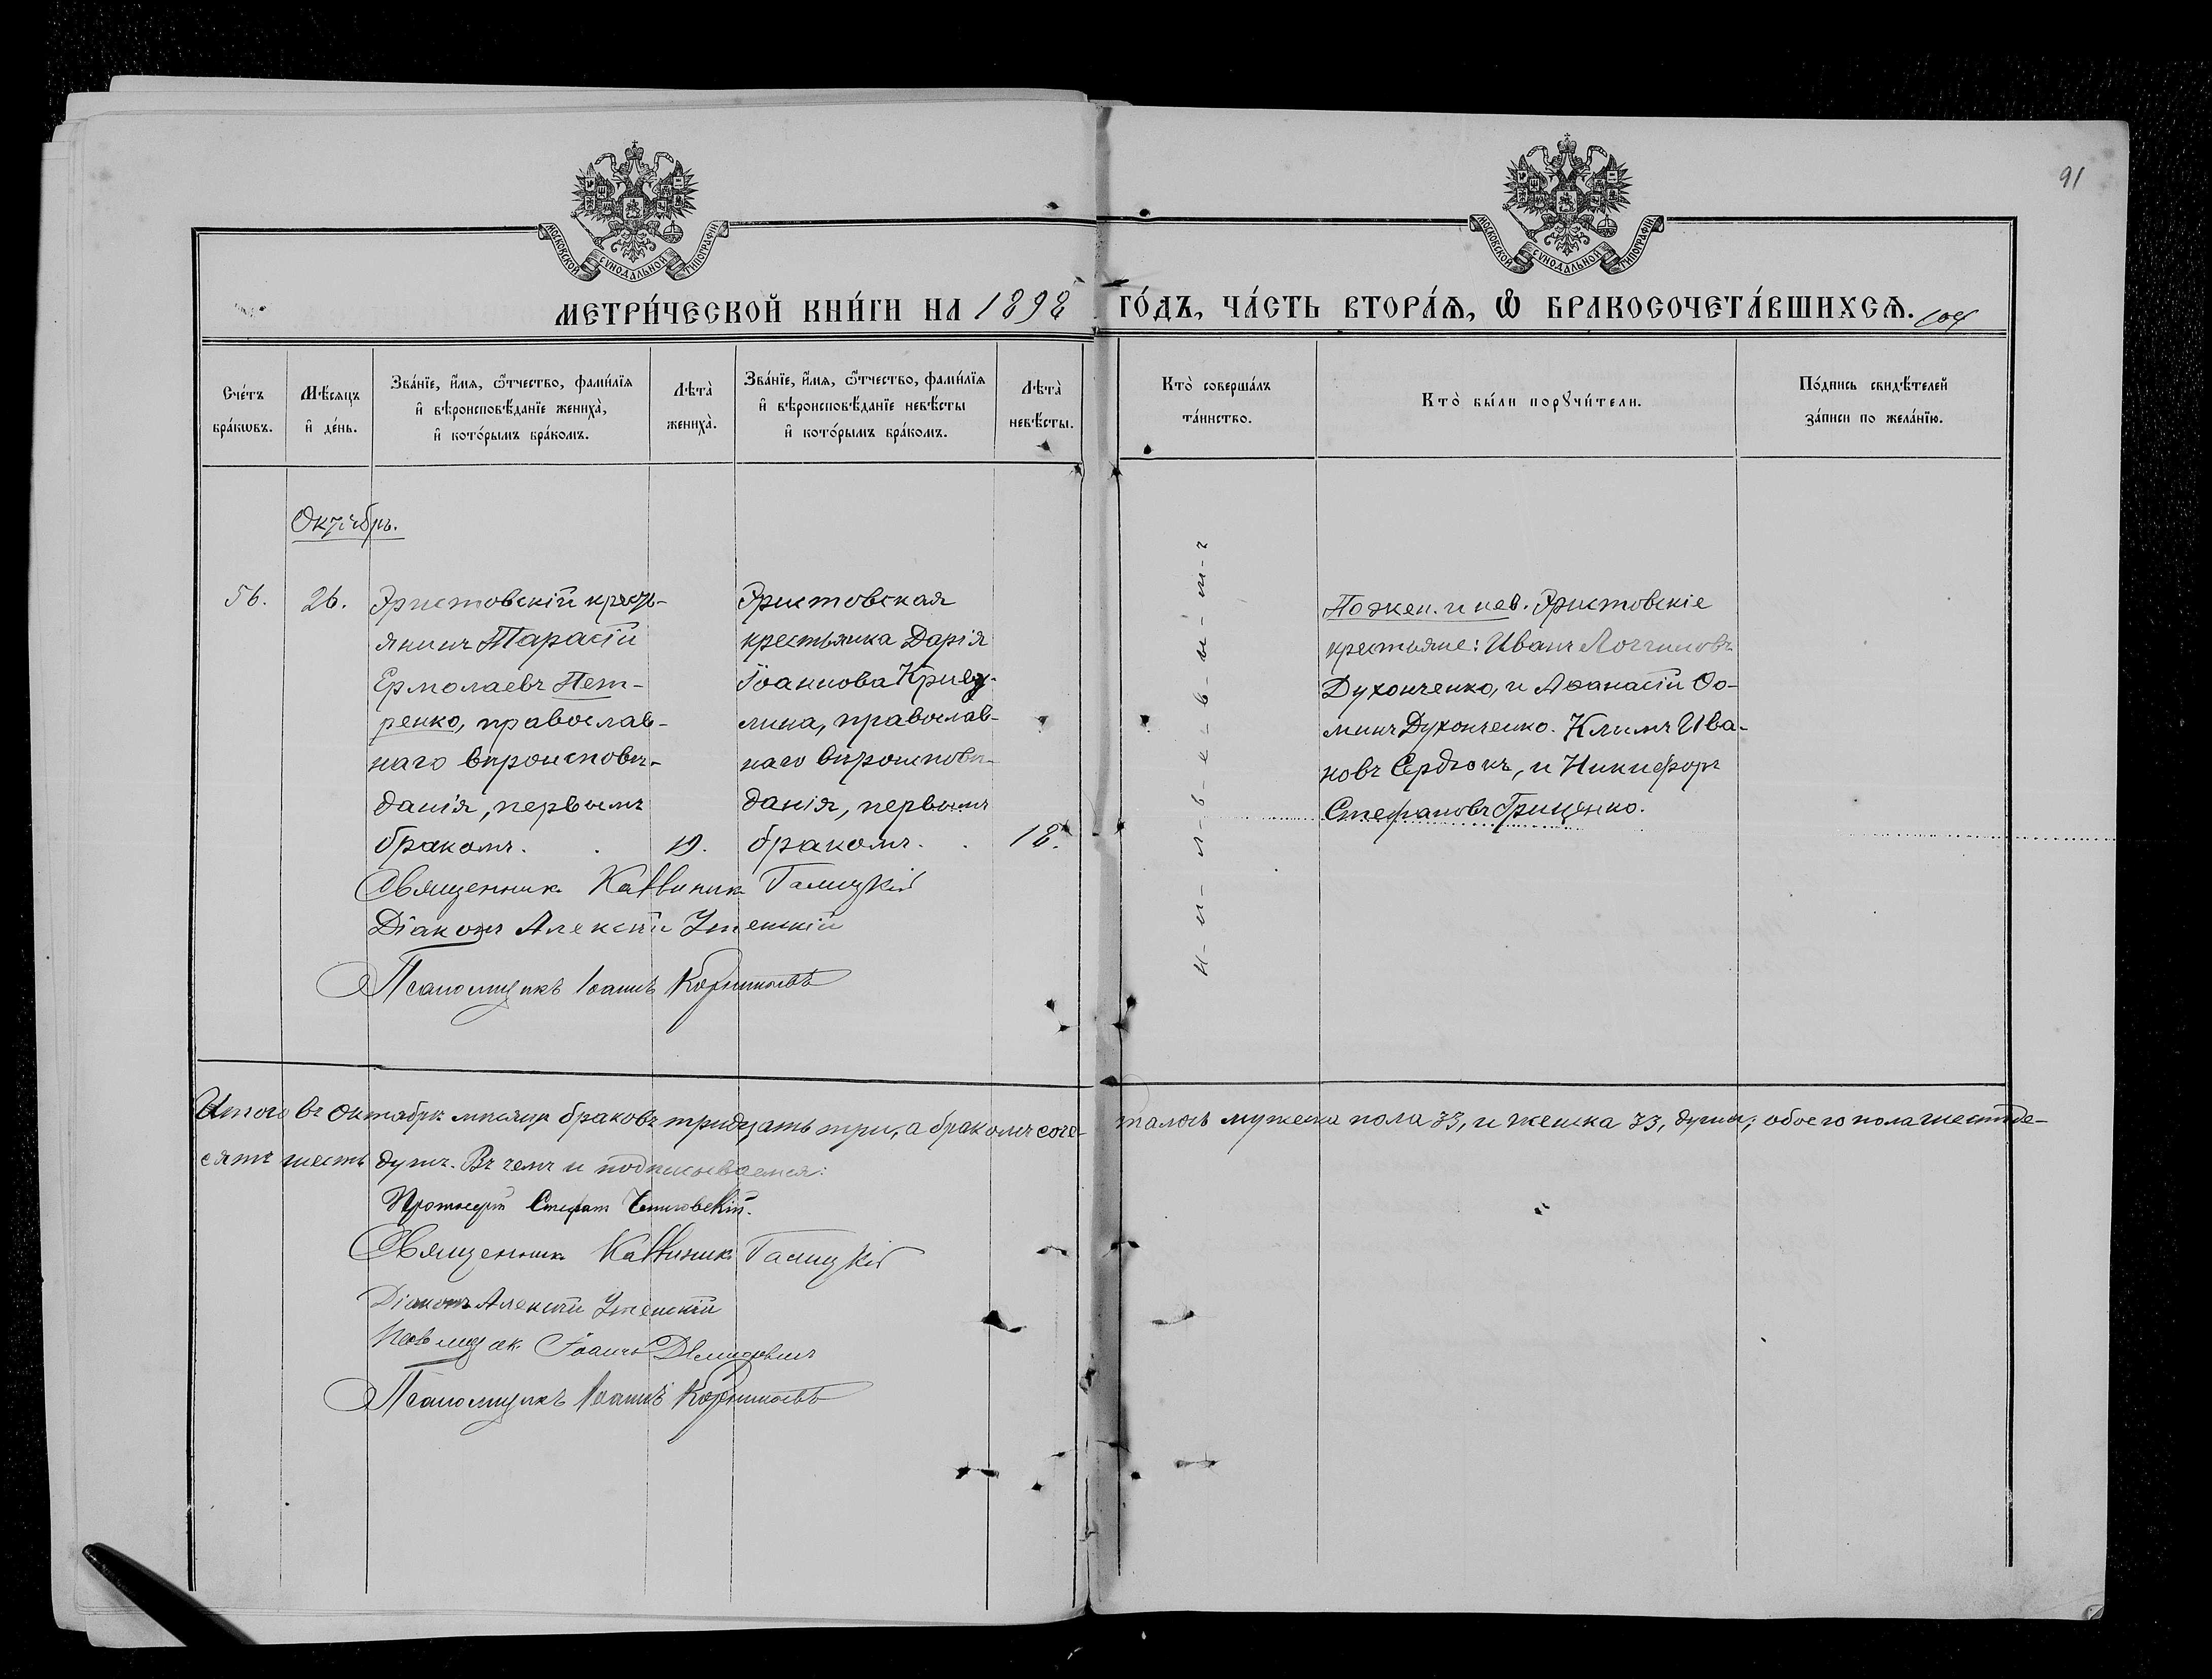 91
МОСКОВСКОЙ СУНОДАЛЬНОЙ ТИПОГРАФІИ
МОСКОВСКОЙ СУНОДАЛЬНОЙ ТИПОГРАФІИ
МЕТРИ́ЧЕСКОЙ КНИ́ГИ НА 1898 ГО́ДЪ, ЧА́СТЬ ВТОРА́Ѧ, Ѽ БРАКОСОЧЕТА́ВШИХСѦ.
104
Сче́тъ бра́кѡвъ.
Мѣ́сяцъ и҆ де́нь.
Зва́нїе, и҆́мѧ, ѻ҆́тчество, фами́лїѧ и҆ вѣроисповѣ́данїе жениха̀, и҆ кото́рымъ бра́комъ.
Лѣта̀ жениха̀.
Зва́нїе, и҆́мѧ, ѻ҆́тчество, фами́лїѧ и҆ вѣроисповѣ́данїе невѣ́сты и҆ кото́рымъ бра́комъ.
Лѣта̀ невѣ́сты.
Кто̀ соверша́лъ та́инство.
Кто̀ бы́ли порꙋчи́тели.
По́дпись свидѣ́телей за́писи по жела́нїю.
Октябрь.
56. 26.
Эристовскій кресть-
янинъ Тарасій
Ермолаевъ Пет-
ренко, православ-
наго вѣроисповѣ-
данія, первымъ
бракомъ. 19.
Эристовская
крестьянка Дарія
Іоаннова
лина, православ-
наго вѣроисповѣ-
данія, первымъ
бракомъ. 18.
По жен. и нев. Эристовскіе
крестьяне: Иванъ Логгиновъ
Духонченко, и Аѳанасій Ѳо-
минъ Духонченко. Климъ Ива-
новъ Сердюкъ, и Никифоръ
Стефановъ Гриценко.
Священникъ Каллиникъ Галицкій
Діаконъ Алексій
Псаломщикъ Іоаннъ
Итого въ октябрѣ мѣсяцѣ браковъ тридцать три, а бракомъ соче-
талось мужеска пола 33, и женска 33, души; обоего пола шестьде-
сятъ шесть душъ. Въ чемъ и подписываемся:
Протоіерей Стефанъ
Священникъ Каллиникъ Галицкій
Діаконъ Алексій
Іоаннъ
Псаломщикъ Іоаннъ